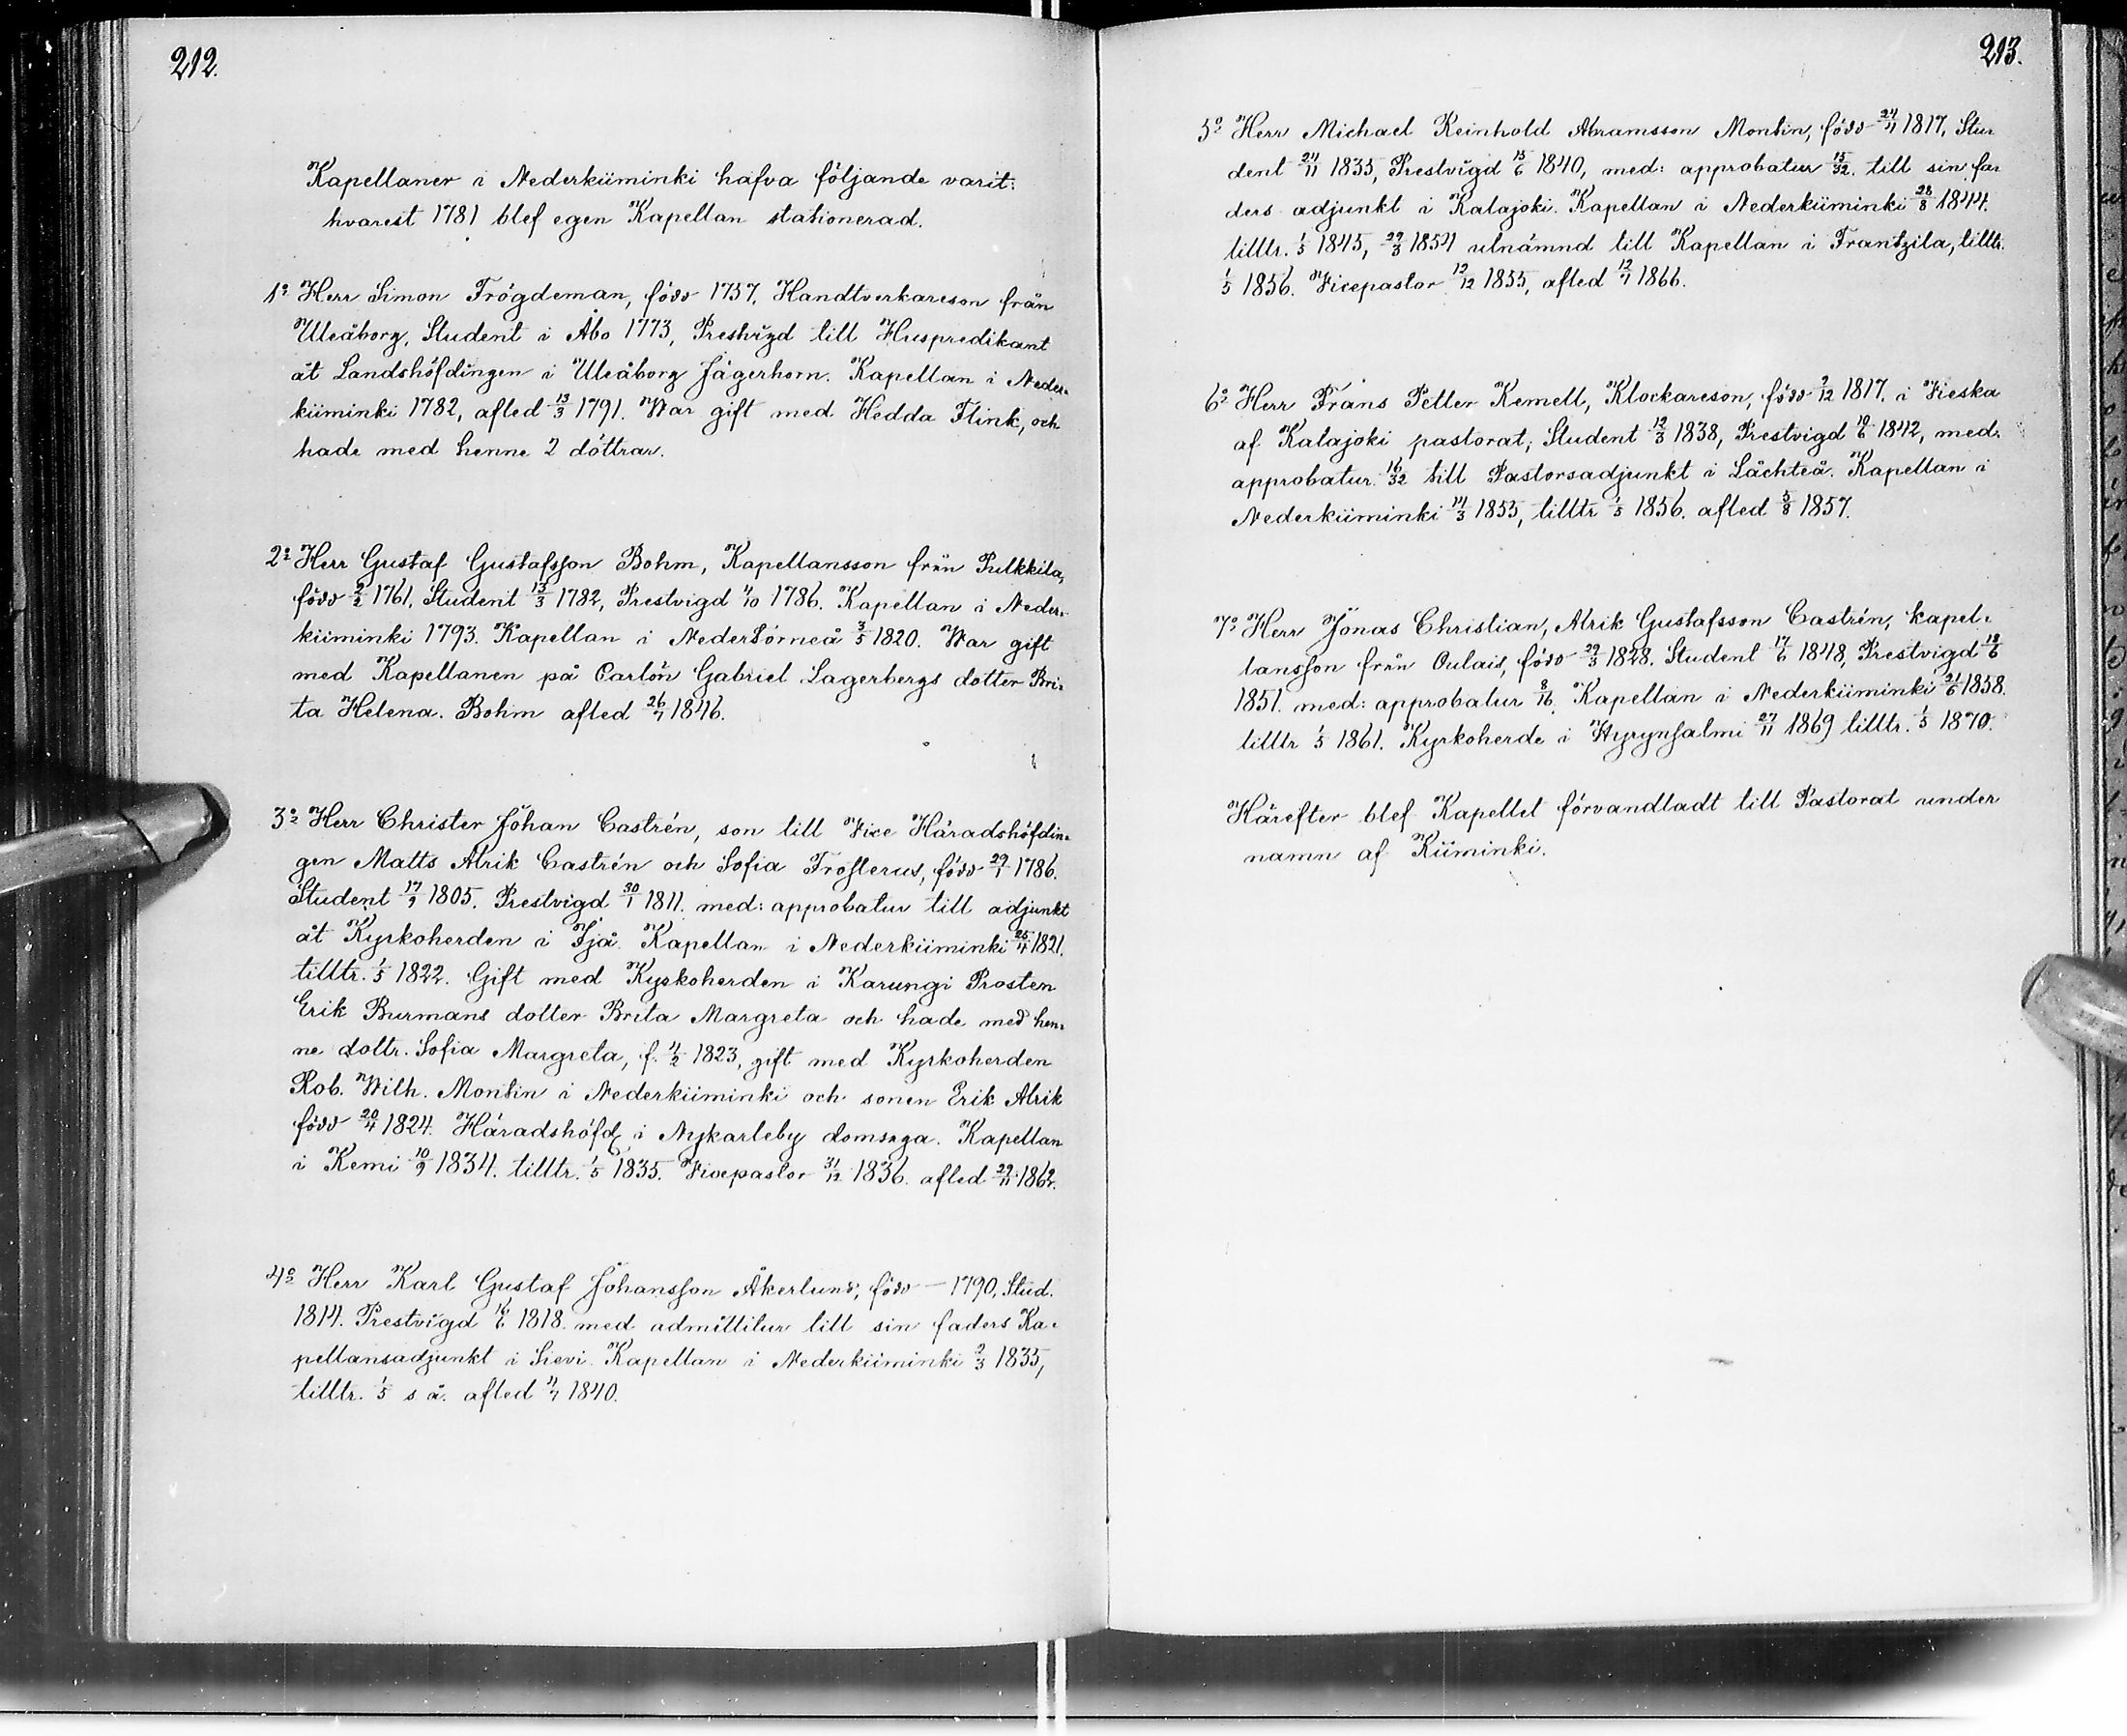 212.
Kapellaner i Nederkiiminki hafva följande varit:
hvarest 1781 blef egen Kapellan stationerad.
1º Herr Simon Frögdeman, född 1757, Handtverkareson från
Uleåborg, Student i Åbo 1773, Prestvigd till Huspredikant
åt Landshöfdingen i Uleåborg Jägerhorn. Kapellan i Neder-
kiiminki 1782, afled 13/3 1791. War gift med Hedda Flink, och
hade med henne 2 döttrar.
2º Herr Gustaf Gustafsson Bohm, Kapellansson från Pulkkila,
född 2/2 1761, Student 13/3 1782, Prestvigd 4/10 1786. Kapellan i Neder-
kiiminki 1793. Kapellan i NederTorneå 3/5 1820. War gift
med Kapellanen på Carlön Gabriel Lagerbergs dotter Bri-
ta Helena. Bohm afled 26/7 1846.
3º Herr Christer Johan Castrén, son till Vice Häradshöfdin-
gen Matts Alrik Castrén och Sofia Frosterus, född 29/1 1786.
Student 17/9 1805. Prestvigd 30/1 1811. med: approbatur till adjunkt
åt Kyrkoherden i Ijå. Kapellan i Nederkiiminki 25/4 1821.
tilltr. 1/5 1822. Gift med Kyrkoherden i Karungi Prosten
Erik Burmans dotter Brita Margreta och hade med hen-
ne dottr. Sofia Margreta, f. 4/2 1823, gift med Kyrkoherden
Rob. Wilh. Montin i Nederkiiminki och sonen Erik Alrik
född 20/4 1824. Häradshöfd. i Nykarleby domsaga. Kapellan
i Kemi 10/9 1834. tilltr. 1/5 1835. Vicepastor 31/12 1836. afled 29/11 1862.
4º Herr Karl Gustaf Johansson Åkerlund, född — 1790, Stud.
1814. Prestvigd 16/6 1818. med admittitur till sin faders Ka-
pellansadjunkt i Sievi. Kapellan i Nederkiiminki 2/3 1835,
tilltr. 1/5 s å. afled 4/7 1840.
213.
5º Herr Michael Reinhold Abramsson Montin, född 24/11 1817, Stu-
dent 24/11 1835, Prestvigd 15/6 1840, med: approbatur 15/32. till sin fa-
ders adjunkt i Kalajoki. Kapellan i Nederkiiminki 28/8 1844.
tilltr. 1/5 1845, 29/3 1854 utnämnd till Kapellan i Frantzila, tilltr.
1/5 1856. Vicepastor 12/12 1855, afled 12/7 1866.
6º Herr Frans Petter Kemell, Klockareson, född 2/12 1817. i Vieska
af Kalajoki pastorat, Student 12/3 1838, Prestvigd 10/6 1842, med.
approbatur. 16/32 till Pastorsadjunkt i Låchteå. Kapellan i
Nederkiiminki 14/3 1855, tilltr 1/5 1856. afled 5/8 1857.
7º Herr Jonas Christian, Alrik Gustafsson Castrén, kapel-
lansson från Oulais, född 29/3 1828. Student 17/6 1848, Prestvigd 18/6
1851. med: approbatur 8/16. Kapellan i Nederkiiminki 21/6 1858.
tilltr 1/5 1861. Kyrkoherde i Hyrynsalmi 27/11 1869 tilltr. 1/5 1870.
Härefter blef Kapellet förvandladt till Pastorat under
namn af Kiiminki.